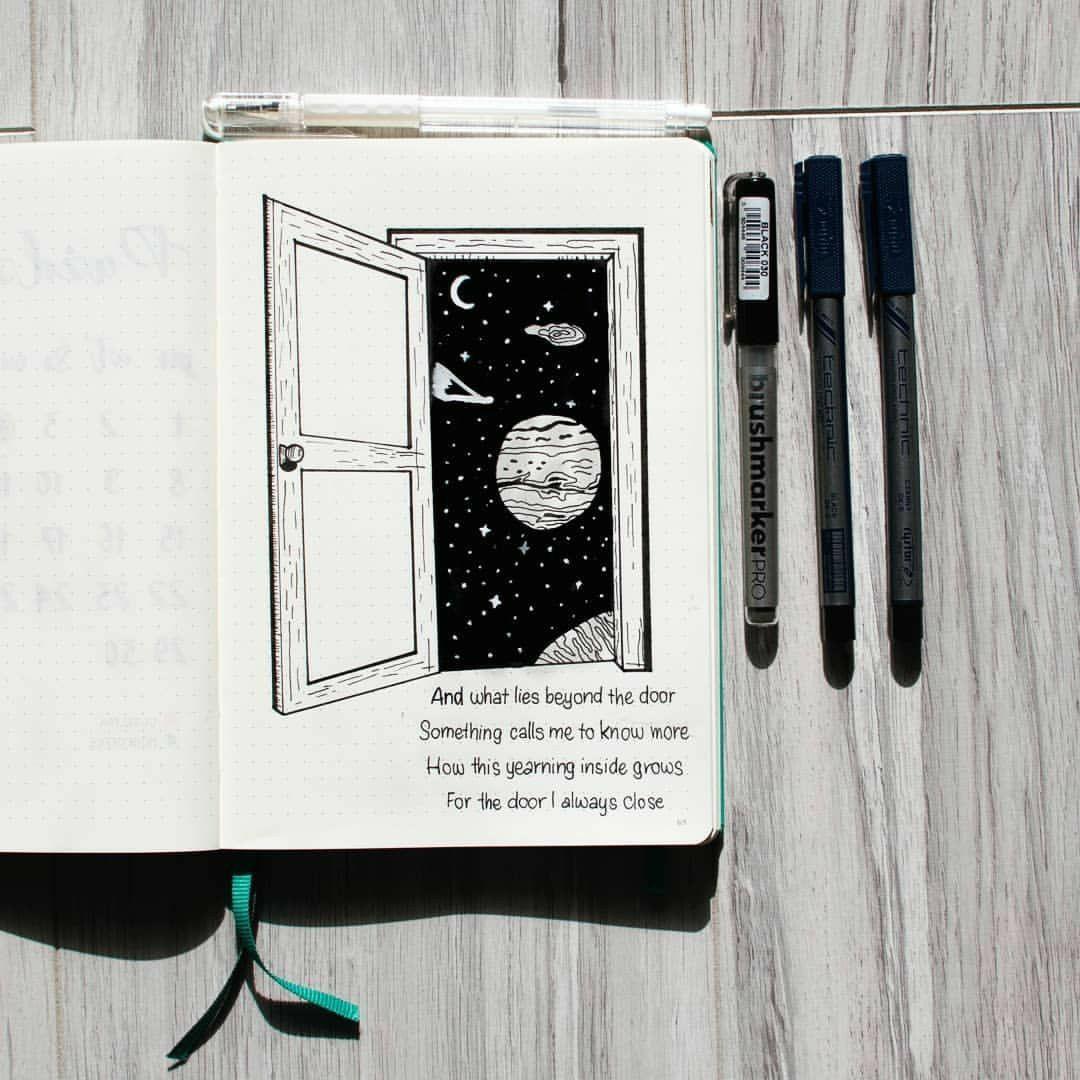 And what lies beyond the door
Something calls me to know more
How this yearning inside grows
For the door I always close
BLACK 030
brushmarkerPRO
technic
technic